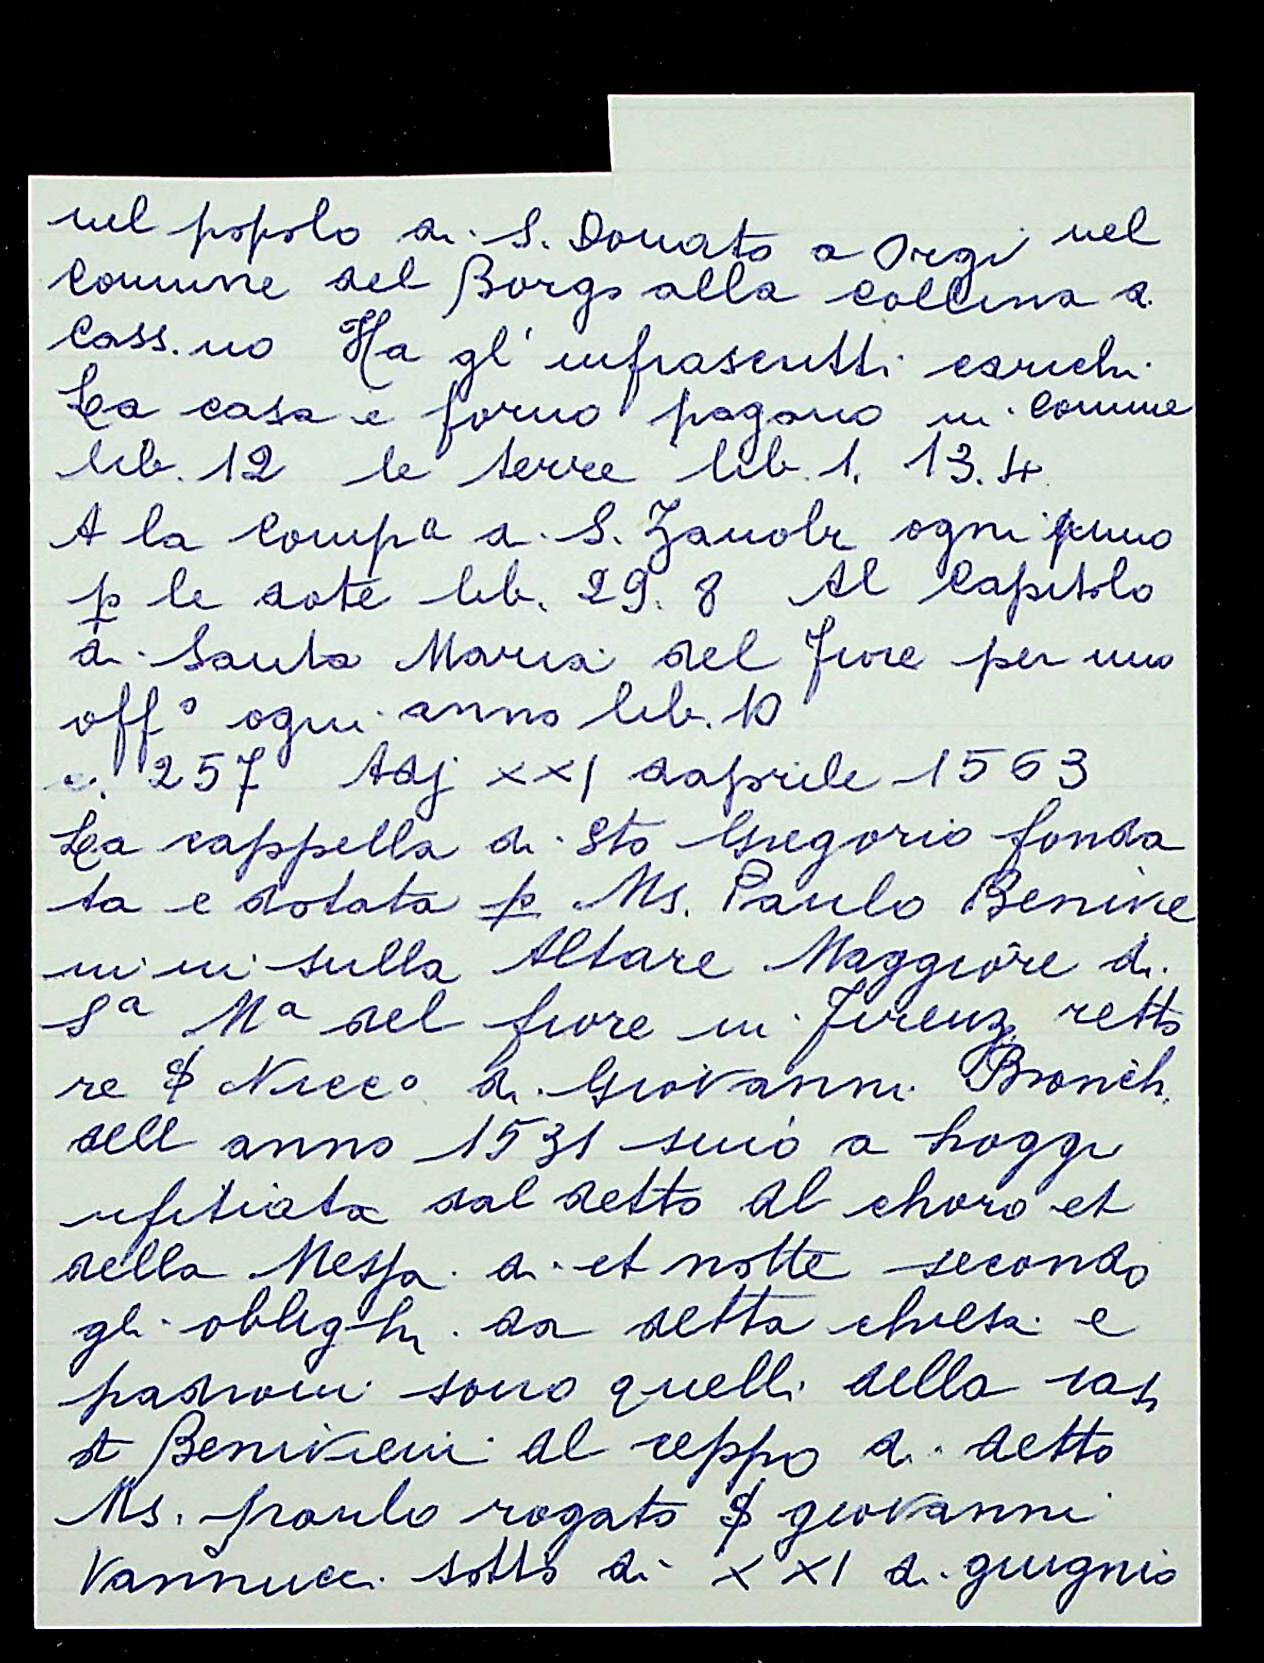 nel popolo di S. Donato a Orgi nel
Comune del Borgo alla Collina a
Cass.no Ha gl'infrascritti carichi
La casa e forno pagano in Comune
lib. 12 le terre lib. 1. 13.4
A la Compa di S. Zanobi ogni anno
p le dote lib. 29. 8 Al Capitolo
di Santa Maria del Fiore per uno
offo ogni anno lib. 10
c. 257 Adj XXI daprile 1563
La cappella di Sto Gregorio fonda
ta e dotata p Ms. Paulo Benive
ni in sulla Altare Maggiore di
Sa Ma del fiore in Firenz. retto
re $ Nicco di Giovanni Bronch.
dell anno 1531 sino a hoggi
ufitiata dal detto al choro et
della Messa di et notte secondo
gli oblighi da detta chiesa e
padroni sono quelli della casa
di Benivieni al ceppo di detto
Ms. paulo rogato $ giovanni
Vannucci sotto di XXI di giugnio